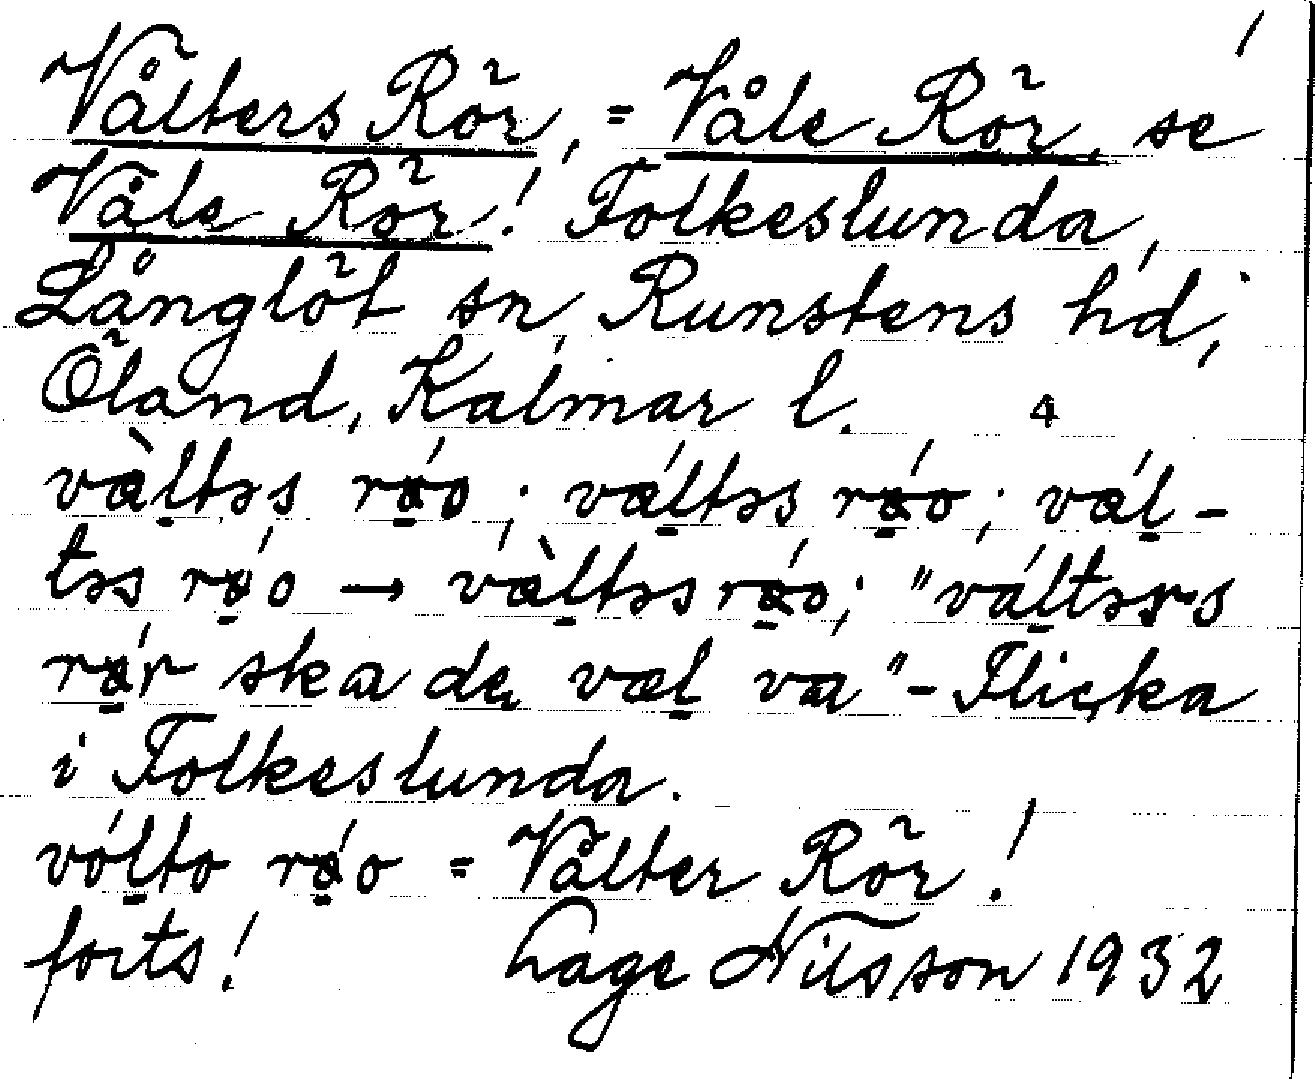 /
Vålters Rör, = Våle Rör, se
Våle Rör! Folkeslunda,
Långlöt sn, Runstens hd,
Öland, Kalmar l. 4
vàl̠təs rǿ̠o ; vál̠təs rǿ̠o ; vál̠-
təs rǿ̠o → vàl̠təs rǿ̠o; "vál̠tərs
rǿ̠r ska de væl̠ va" - Flicka
i Folkeslunda.
vól̠to rǿ̠o = Vålter Rör!
forts! Lage Nilsson 1932